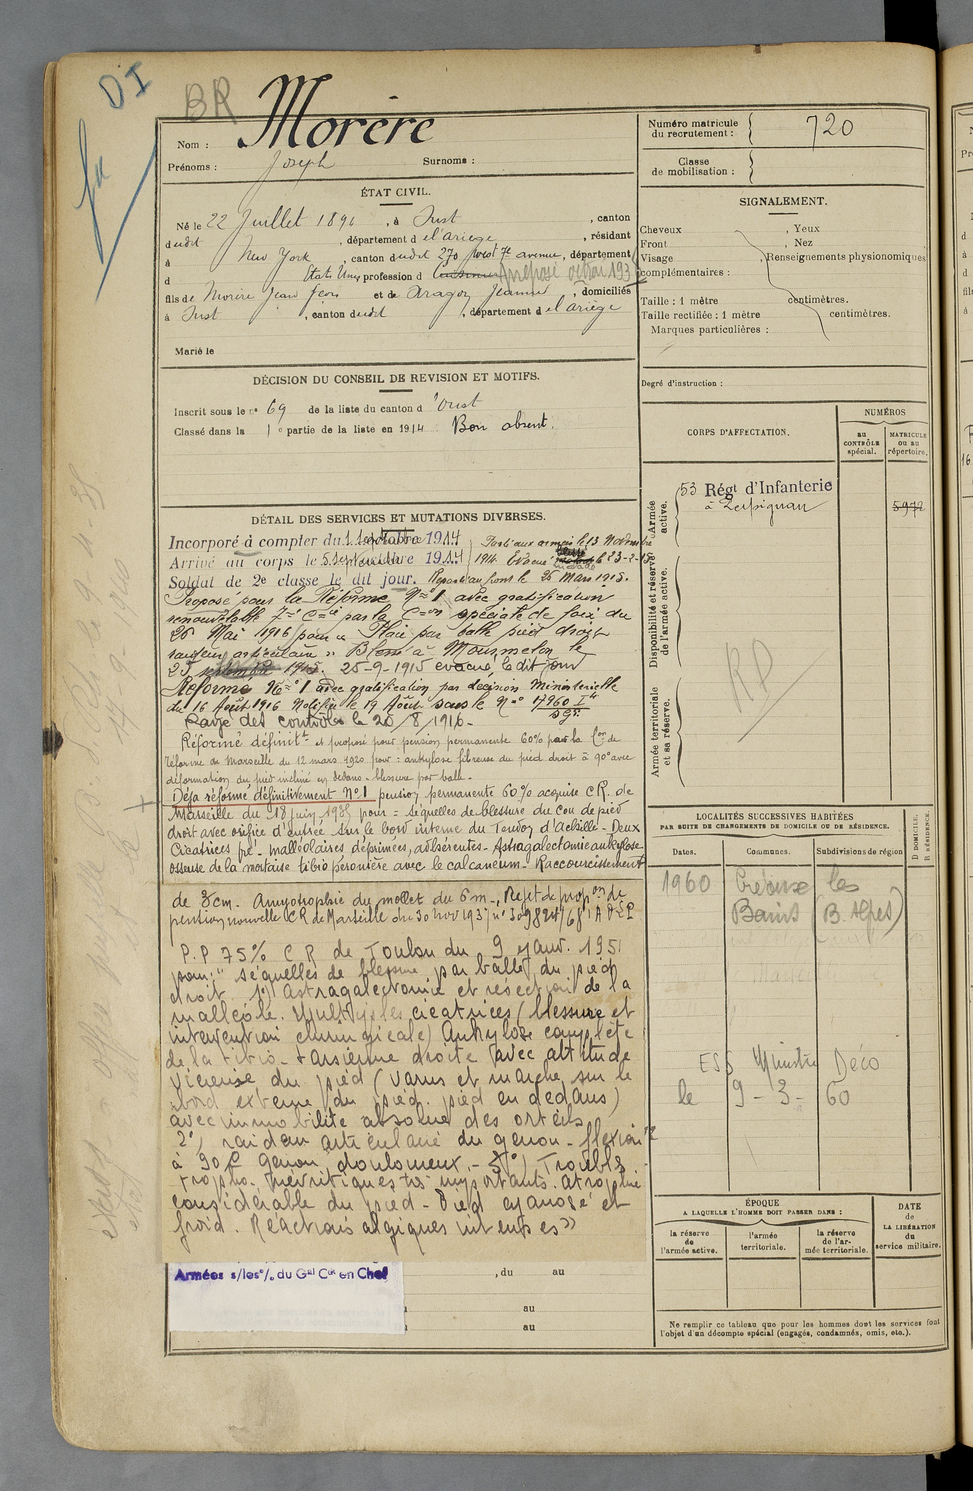 DI
BR
Nom : Morère
Prénoms : Joseph Surnoms :
Numéro matricule du recrutement : 720
Classe de mobilisation :
ÉTAT CIVIL.
Né le 22 Juillet 1894, à Oust, canton
dudit, département de l'ariège, résidant
à New York, canton dudit 270 West 7e avenue, département
d Etats Unis profession d Cuisinier préposé octroi 193
fils de Morère Jean Jean et de Aragon Jeanne, domiciliés
à Oust, canton dudit, département de l'ariège
Marié le
SIGNALEMENT.
Cheveux , Yeux
Front , Nez
Visage , Renseignements physionomiques
complémentaires :
Taille : 1 mètre centimètres.
Taille rectifiée : 1 mètre centimètres.
Marques particulières :
Degré d'instruction :
DÉCISION DU CONSEIL DE REVISION ET MOTIFS.
Inscrit sous le n° 69 de la liste du canton d'Oust
Classé dans la 1e partie de la liste en 1914 Bon absent.
CORPS D'AFFECTATION.
NUMÉROS
AU CONTRÔLE spécial.
MATRICULE OU AU répertoire.
Armée active.
53 Régt d'Infanterie
à Perpignan
5972
Disponibilité et réserve de l'armée active.
Armée territoriale et sa réserve.
RP
DÉTAIL DES SERVICES ET MUTATIONS DIVERSES.
Incorporé à compter du 1 septembre 1914
Arrivé au corps le 5 septembre 1914
Soldat de 2e classe le dit jour.
Parti aux armées le 13 Novembre
1914 Evacué blessé le 23-2-15
Reparti au front le 25 Mars 1915.
Proposé pour la Réforme N° 1 avec gratification
renouvelable 7me Cie par la Con spéciale de foix du
25 Mai 1916 pour « Plaie par balle pied droit
raideur articulaire » Blessé à Mourmelon le
25 septembre 1915. 25-9-1915 évacué le dit jour
Réformé N° 1 avec gratification par décision Ministérielle
du 16 Août 1916 Notifiée le 19 Août sous le N° 17960 I
Rayé des contrôles le 20/8/1916.
Réformé définitt et proposé pour pension permanente 60% par la Con de
Réforme de Marseille du 12 mars 1920 pour : ankylose fibreuse du pied droit à 90° avec
déformation du pied incliné en dedans - blessure par balle.
Déjà réformé définitivement N° 1 pension permanente 60% acquise C.R. de
Marseille du 18 juin 1935 pour = séquelles de blessure du cou de pied
droit avec orifice d'entrée sur le bord interne du Tendon d'achille - Deux
Cicatrices pré-malléolaires déprimées, adhérentes - Astragalectomie ankylose
osseuse de la mortaise tibio péronière avec le calcaneum - Raccourcissement
de 3cm. Amyotrophie du mollet du 6m-, Rejet de propon de
pension nouvelle C.R de Marseille du 30 nov 1937
P.P 75% C R de Toulon du 9 janv. 1951
pour " séquelles de blessure par balle du pied
droit. 1°) Astragalectomie et résection de la
malléole. Multiples cicatrices (blessure et
intervention chirurgicale) Ankylose complète
de la tibio-tarsienne droite avec attitude
vicieuse du pied (varus et marche sur le
bord externe du pied. pied en dedans)
avec immobilité absolue des orteils
2°) raideur articulaire du genou - flexion
à 90° genou douloureux - 3°) Troubles
tropho-névritiques très importants. atrophie
considérable du pied - Pied cyanosé et
froid. Réactions algiques intenses »
Armées s/les o/. du Gal Ct en Chef
, du au
au
au
LOCALITÉS SUCCESSIVES HABITÉES
PAR SUITE DE CHANGEMENTS DE DOMICILE OU DE RÉSIDENCE.
Dates. Communes. Subdivisions de région
D DOMICILE. R RÉSIDENCE.
1960 Gréoux les
Bains (B. Alpes)
Ministre Déco
le 9 - 3 - 60
ÉPOQUE
A LAQUELLE L'HOMME DOIT PASSER DANS :
la réserve de l'armée active.
l'armée territoriale.
la réserve de l'armée territoriale.
DATE de LA LIBÉRATION du service militaire.
Ne remplir ce tableau que pour les hommes dont les services font
l'objet d'un décompte spécial (engagés, condamnés, omis, etc.).